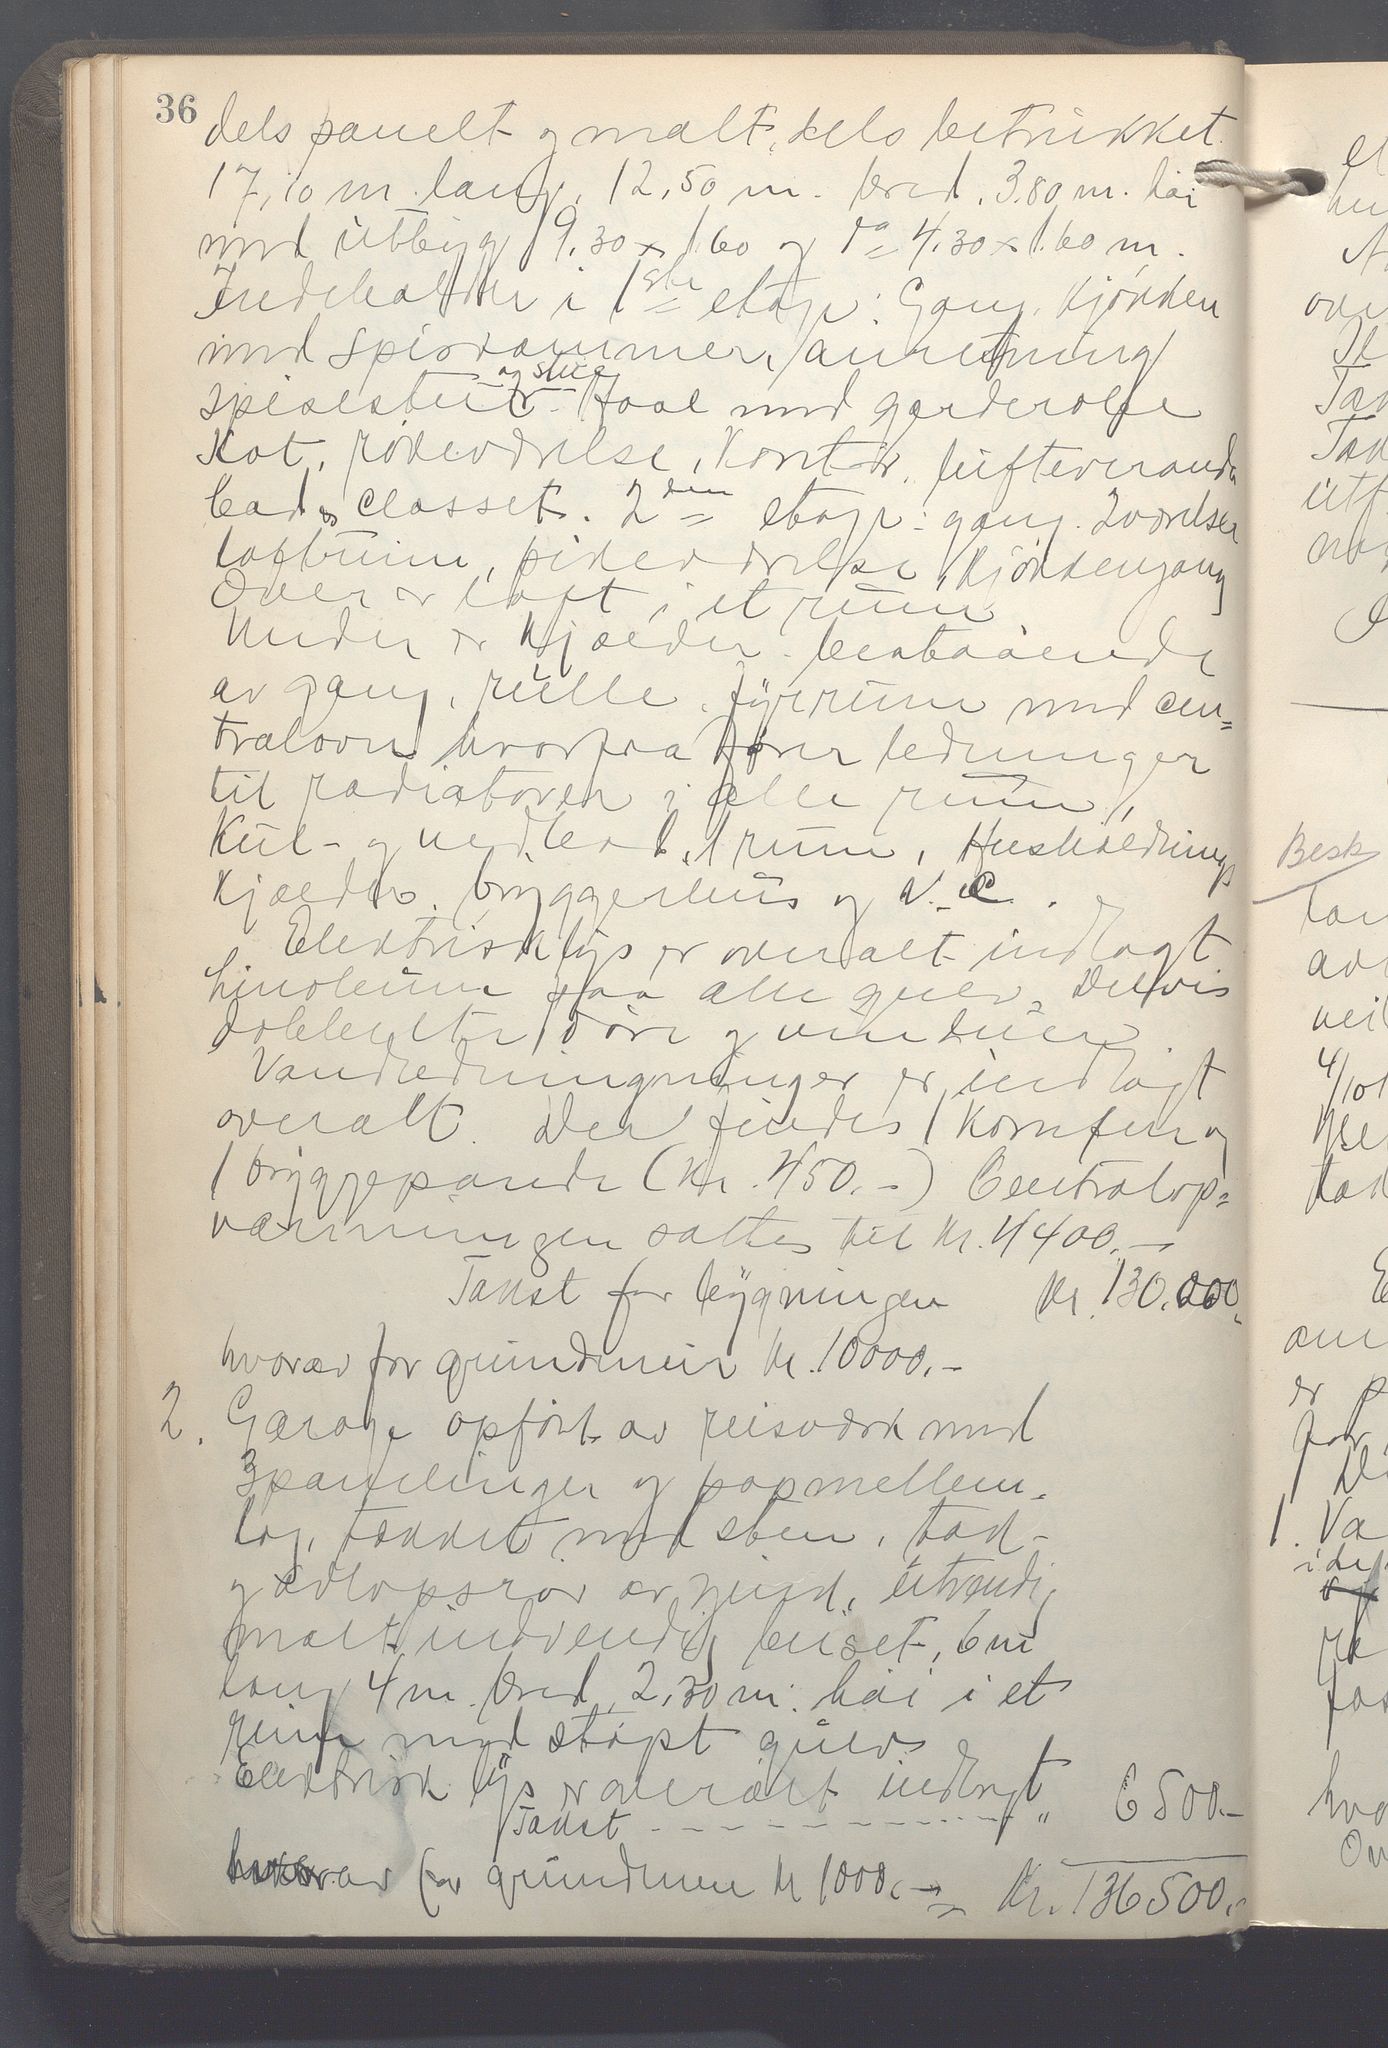 36
dels panelt og malt, dels betrukket.
17,10 m. lang, 12,50 m. bred, 3.80 m. høi
med utbyg 9.30 x 1.60 og do 4.30 x 1.60 m.
Indeholder i 1ste etage: Gang, kjökken
med spiskammer, anretning
og stue
spisestue Hall med garderobe
Kot, røkeværelse, Kontor, lufteveranda
bad & closset. 2den etage: gang. 2værelser
loftrum, pikeværelse, Kjökkengang
Over er loft i et rum
Under er Kjælder bestaaende
av gang, rulle, fyrrum med cen=
tralovn hvorfra fører ledninger
til radiatorer i alle rum,
Kul- og vedbod, 1 rum, Husholdnings
kjælder, bryggerhus og V.C.
Elektrisk lys er overalt indlagt
Linoleum paa alle gulv. Delvis
dobbelte döre og vinduer
Vandledningninger er indlagt
overalt. Der findes 1 komfur og
1 bryggepande (Kr. 450.-) Centralop=
varmningen sattes til Kr. 4400.-
Takst for bygningen Kr. 130.000.
hvorav for grundmur Kr. 10000.-
2. Garage opfört av reisverk med
3 panelinger og papmellem-
lag, tækket med sten, tak-
og avlopsrør av zink, utvendig
malt indvendig beiset, 6 m
lang 4 m. bred, 2,30 m. høi i et
rum med støpt gulv
Elektrisk lys er overalt indlagt
Takst " 6500.-
hvorav for grundmur Kr 1000.- Kr. 136500.
Besk
1. Va
4/10